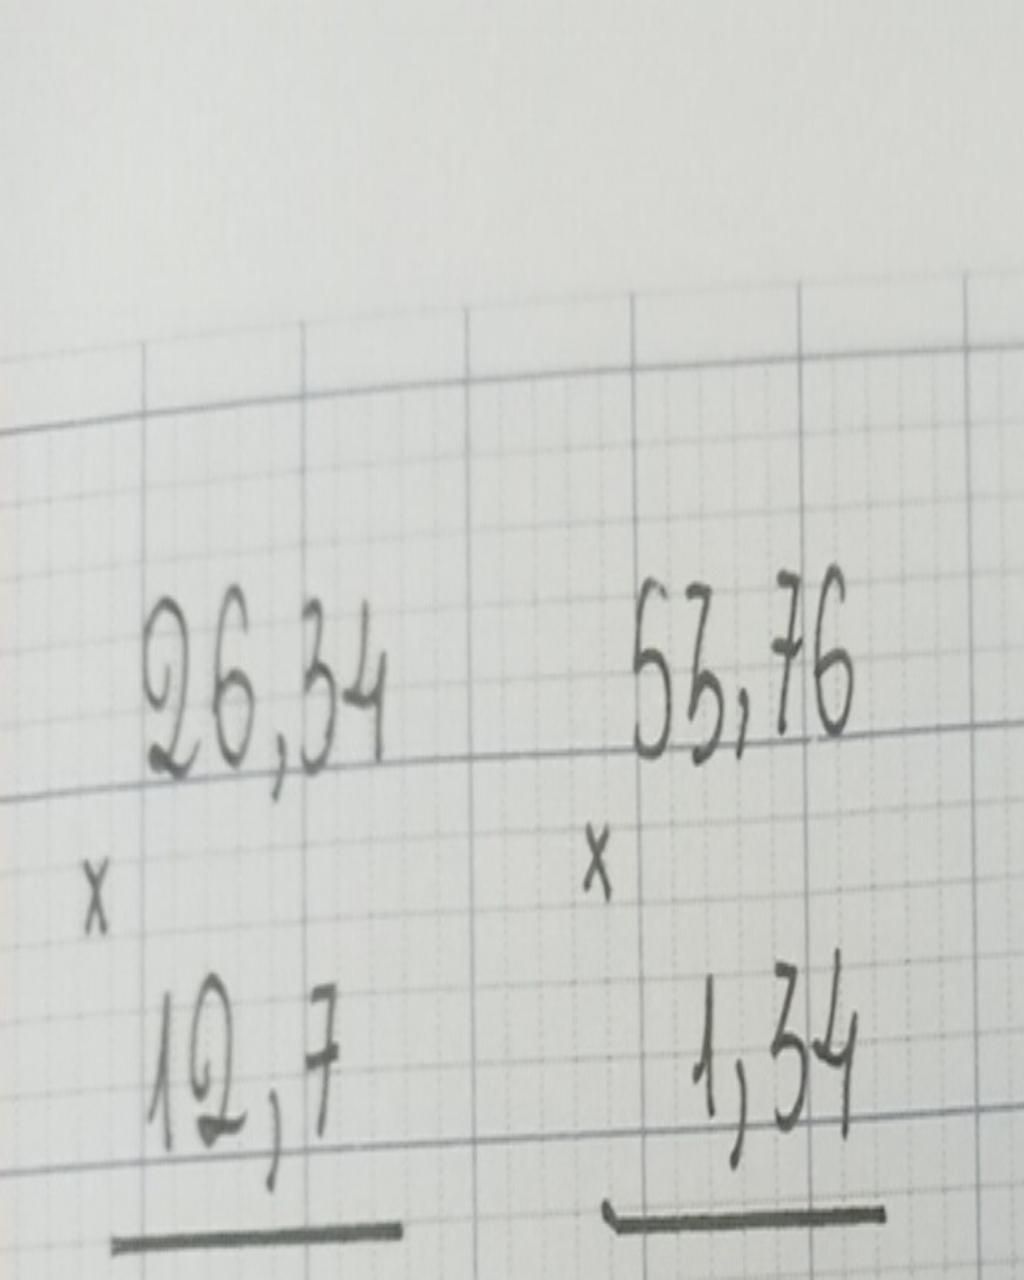 26,34 53,76
x x
12,7 1,34